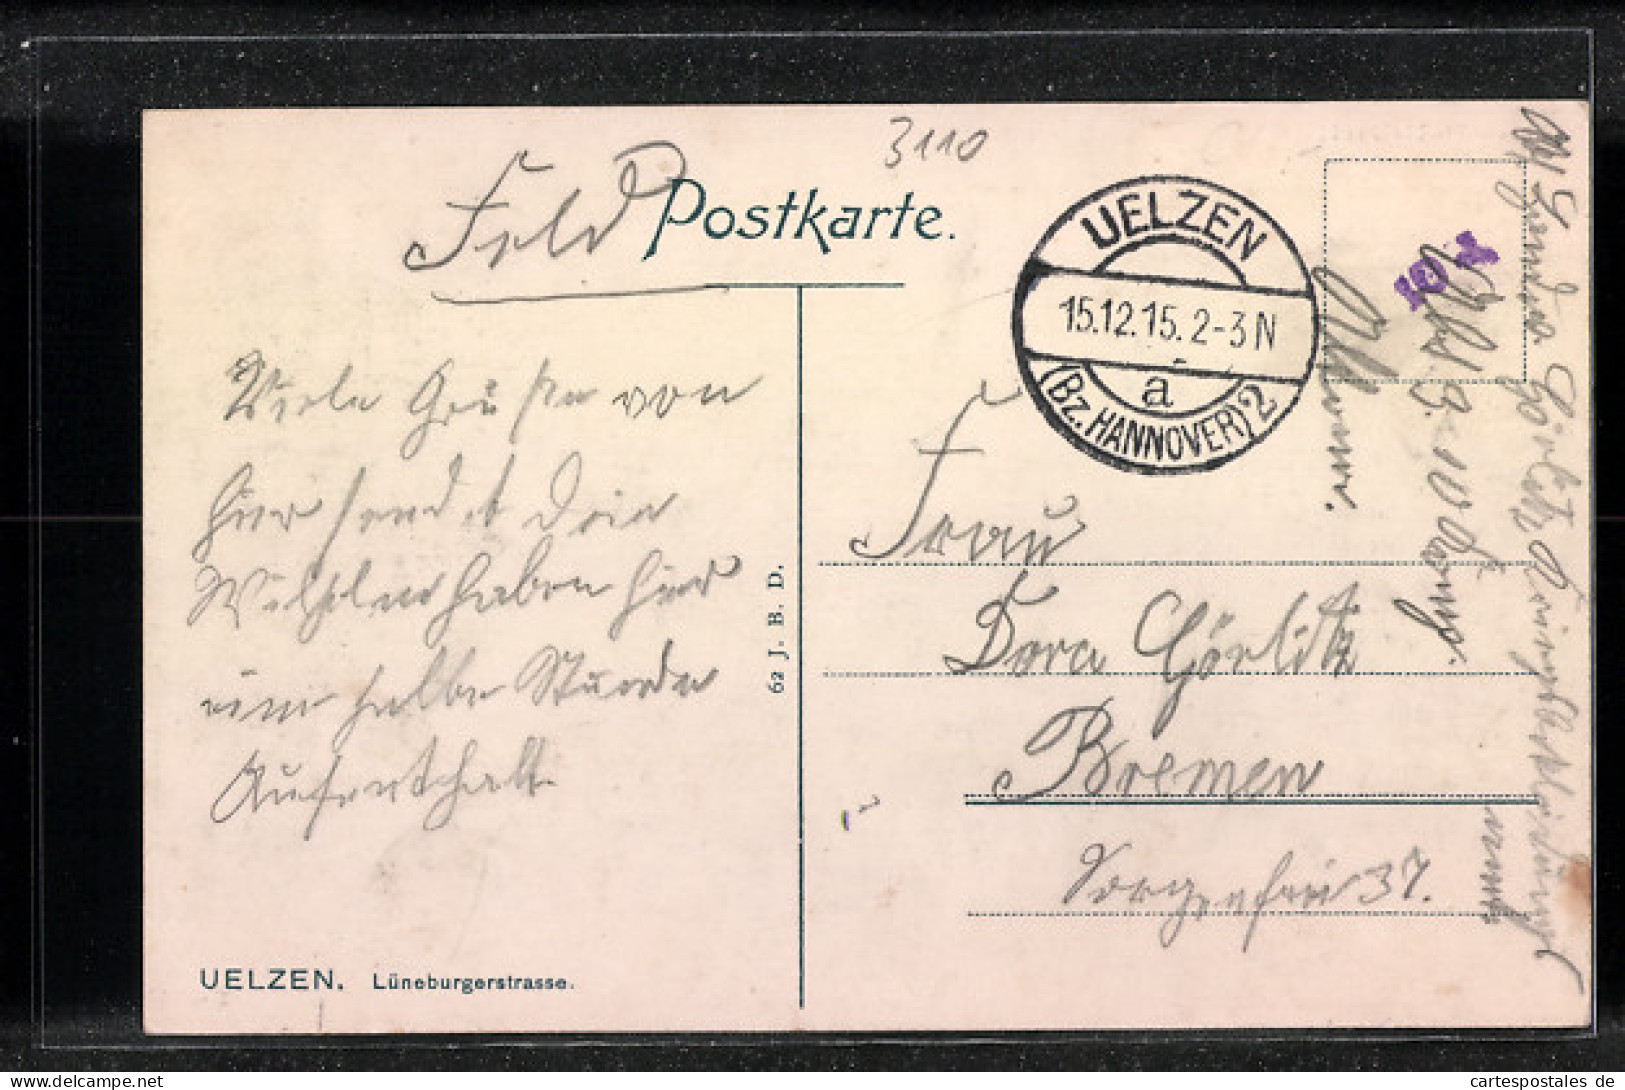 3110
Feld Postkarte.
UELZEN
15.12.15. 2-3 N
a
(Bz. HANNOVER) 2
Viele Grüße von
hier sendet Dein
Wilhelm haben hier
eine halbe Stunde
Aufenthalt
62 J. B. D.
Frau
Dora Görlitz
Bremen
Sorgenfrei 37.
UELZEN. Lüneburgerstrasse.
Abs.
Görlitz
cartespostales de
https://www.delcampe.net/de_DE/